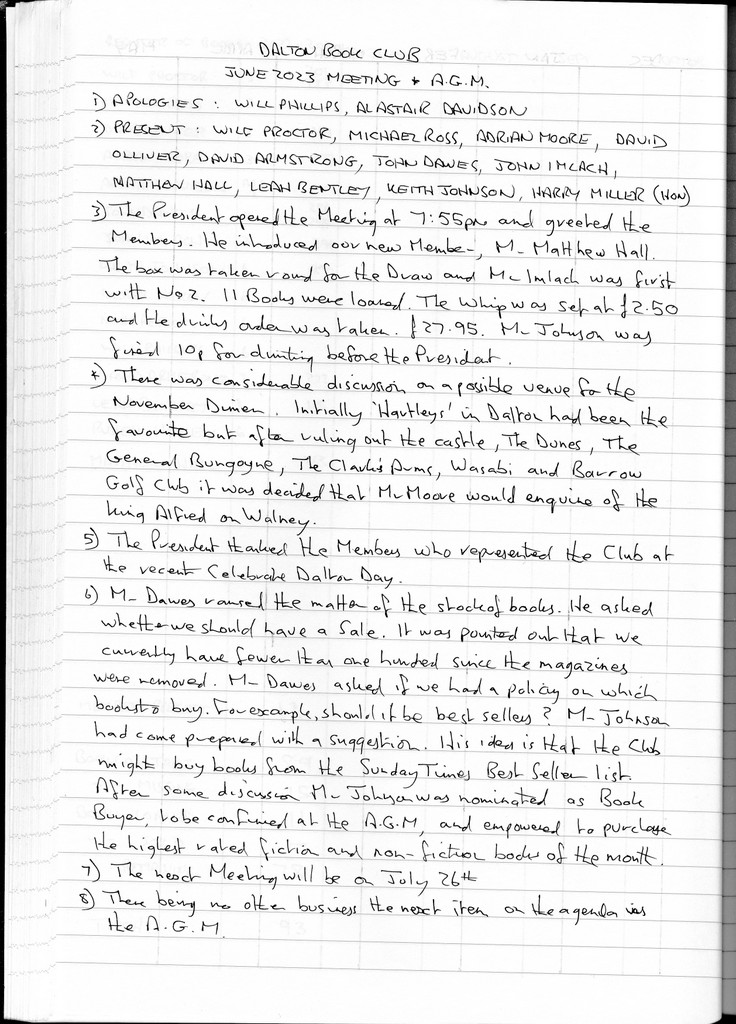 DALTON BOOK CLUB
JUNE 2023 MEETING + A.G.M.
1) APOLOGIES : WILL PHILLIPS, ALASTAIR DAVIDSON
2) PRESENT : WILF PROCTOR, MICHAEL ROSS, ADRIAN MOORE, DAVID
OLLIVER, DAVID ARMSTRONG, JOHN DAWES, JOHN IMLACH,
MATTHEW HALL, LEAH BENTLEY, KEITH JOHNSON, HARRY MILLER (HON)
3) The President opened the Meeting at 7:55pm and greeted the
Members. He introduced our new Member, Mr Matthew Hall.
The box was taken round for the Draw and Mr Imlach was first
with No 2. 11 Books were loaned. The Whip was set at £2.50
and the drinks order was taken. £27.95. Mr Johnson was
fined 10p for drinking before the President.
4) There was considerable discussion on a possible venue for the
November Dinner. Initially 'Hartleys' in Dalton had been the
favourite but after ruling out the castle, The Dunes, The
General Burgoyne, The Clarke's Arms, Wasabi and Barrow
Golf Club it was decided that Mr Moore would enquire of the
King Alfred on Walney.
5) The President thanked the Members who represented the Club at
the recent Celebrate Dalton Day.
6) Mr Dawes raised the matter of the stock of books. He asked
whether we should have a Sale. It was pointed out that we
currently have fewer than one hundred since the magazines
were removed. Mr Dawes asked if we had a policy on which
books to buy. For example, should it be best sellers? Mr Johnson
had come prepared with a suggestion. His idea is that the Club
might buy books from the Sunday Times Best Seller list.
After some discussion Mr Johnson was nominated as Book
Buyer, to be confirmed at the A.G.M, and empowered to purchase
the highest rated fiction and non-fiction books of the month.
7) The next Meeting will be on July 26th
8) There being no other business the next item on the agenda was
the A.G.M.